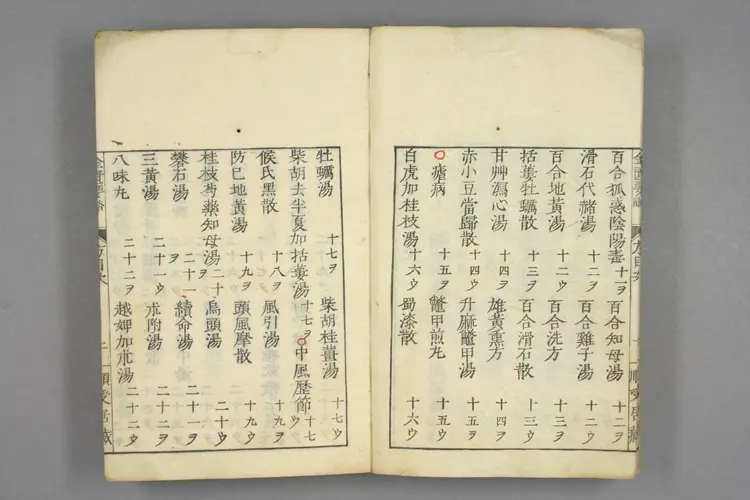 百合狐惑陰陽毒 十一ヲ 百合知母湯 十二ヲ
滑石代赭湯 十二ヲ 百合雞子湯 十二ウ
百合地黄湯 十二ウ 百合洗方 十三ヲ
括蔞牡蠣散 十三ヲ 百合滑石散 十三ウ
甘艸瀉心湯 十四ヲ 雄黄熏方 十四ヲ
赤小豆當歸散 十四ウ 升麻鼈甲湯 十四ウ
瘧病 十五ヲ 鼈甲煎丸 十五ウ
白虎加桂枝湯 十六ウ 蜀漆散 十六ウ
牡蠣湯 十七ヲ 柴胡桂薑湯 十七ウ
柴胡去半夏加括蔞湯 十七ヲ 中風歴節 十七ウ
候氏黒散 十八ヲ 風引湯 十九ヲ
防已地黄湯 十九ヲ 頭風摩散 十九ウ
桂枝芍藥知母湯 二十ヲ 烏頭湯 二十ウ
礬石湯 二十一ヲ 續命湯 二十一ヲ
三黄湯 二十一ウ 朮附湯 二十二ヲ
八味丸 二十二ヲ 越婢加朮湯 二十二ウ
金匱要略 方目次 上 順受居藏